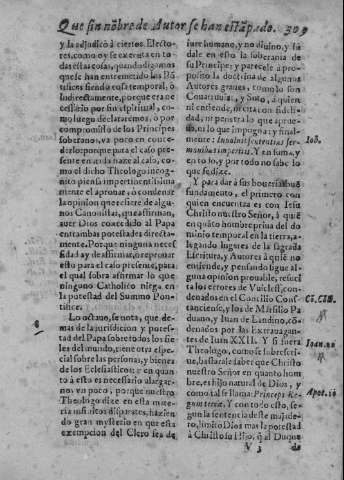 Que sin nōbre de Autor se han estāpado. 309
y la adjudicò à ciertos Electo-
res, como oy se exercita en to-
das estas cosas, quando digamos
que se han entremetido los Pō-
tifices siendo cosa temporal, ò
indirectamente, porque era ne-
cessario por fin espiritual, co-
mo luego declararèmos, ò por
compromisso de los Principes
soberanos, va poco en conce-
derlo: porque para el caso pre-
sente en nada haze al caso, co-
mo el dicho Theologo incog-
nito piensa impertinentissima-
mente el aprobar, ò condenar
la opinion que refiere de algu-
nos Canonistas, que affirman,
aver Dios concedido al Papa
entrambas potestades directa-
mente. Porque ninguna neces-
sidad ay de affirmar, ò reprobar
esto para el caso presente, para
el qual sobra affirmar lo que
ninguno Catholico niega en
la potestad del Summo Pon-
tifice.
8
Lo octavo, se nota, que de-
mas de la jurisdicion y potes-
tad del Papa sobre todos los fie-
les del mundo, tiene otra espe-
cial sobre las personas, y bienes
de los Eclesiasticos: y en quan-
to à esto es necessario alargar-
nos vn poco, porque nuestro
Theologo dize en esta mate-
ria insulsos disparates, haziendo
gran mysterio en que esta
exempcion del Clero sea de
iure humano, y no divino, y fu-
dale en esto la soberania de
su Principe; y parecele à pro-
posito la doctrina de algunos
Autores graves, como son
Couarruvias, y Soto, à quien
ni entiende, ni cita con fideli-
dad, ni penetra lo que aprue-
ba, ni lo que impugna; y final-
mente: Inuoluit sententias ser-
monibus imperitis. Y en suma, y
en todo, y por todo no sabe lo
que se dize.
Iob.
Y para dar à sus boberias buē
fundamento, el primero con
quien encuentra es con Iesu
Christo nuestro Señor, à quiē
en quāto hombre priva del do-
minio temporal en la tierra, a-
legando lugares de la sagrada
Escritura, y Autores à quiē no
entiende, y pensando sigue al-
guna opinion probable, resuci-
ta los errores de Vuicleff, con-
denados en el Concilio Cons-
tanciense, y los de Marsilio Pa-
duano, y Iuan de Landino, cō-
denados por las Extravagan-
tes de Iuan XXII. Y si fuera
Theologo, como se subrescri-
ue, bastarale saber que Christo
nuestro Señor en quanto hom-
bre, es hijo natural de Dios, y
como tal se llama: Princeps Re-
gum terræ. Y con todo esto, se-
gun la sentencia deste majade-
ro, limitò Dios mas la potestad
à Christo su Hijo, q̄ al Duque
Cō. Cōst.
Ioan. 22
Apoc. 16
V 3 de